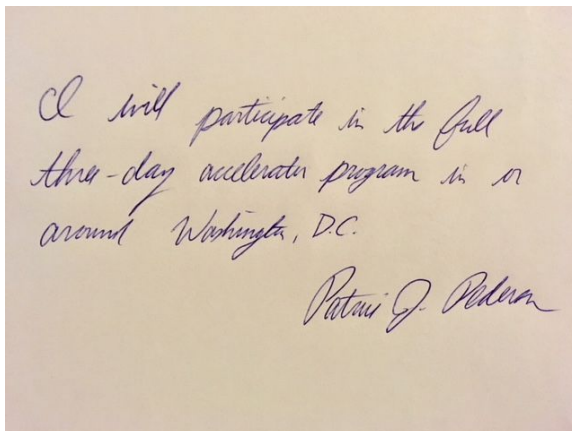 I will participate in the full
three-day accelerator program in or
around Washington, D.C.
Patric J. Pederson